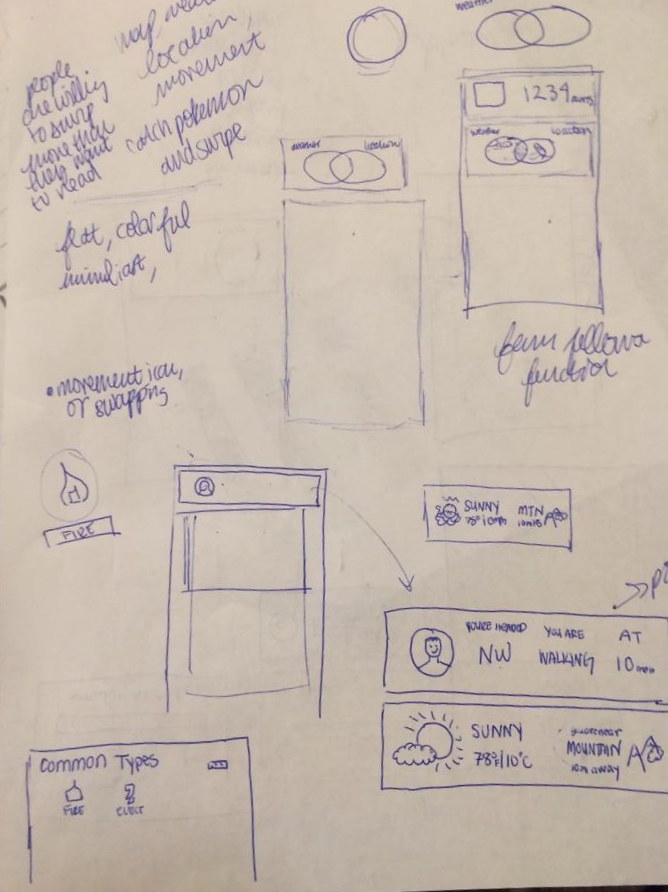 people
are willing
to swipe
more than
they want
to read
map
location,
movement
catch pokemon
and swipe
weather
1234
weather location
location
flat, colorful
form follows
function
• movement icon,
or swapping
FIRE
SUNNY MTN
YOU'RE HEADED YOU ARE AT
NW WALKING 10
SUNNY
78°/10°C
MOUNTAIN
10m away
Common Types
FIRE ELECT